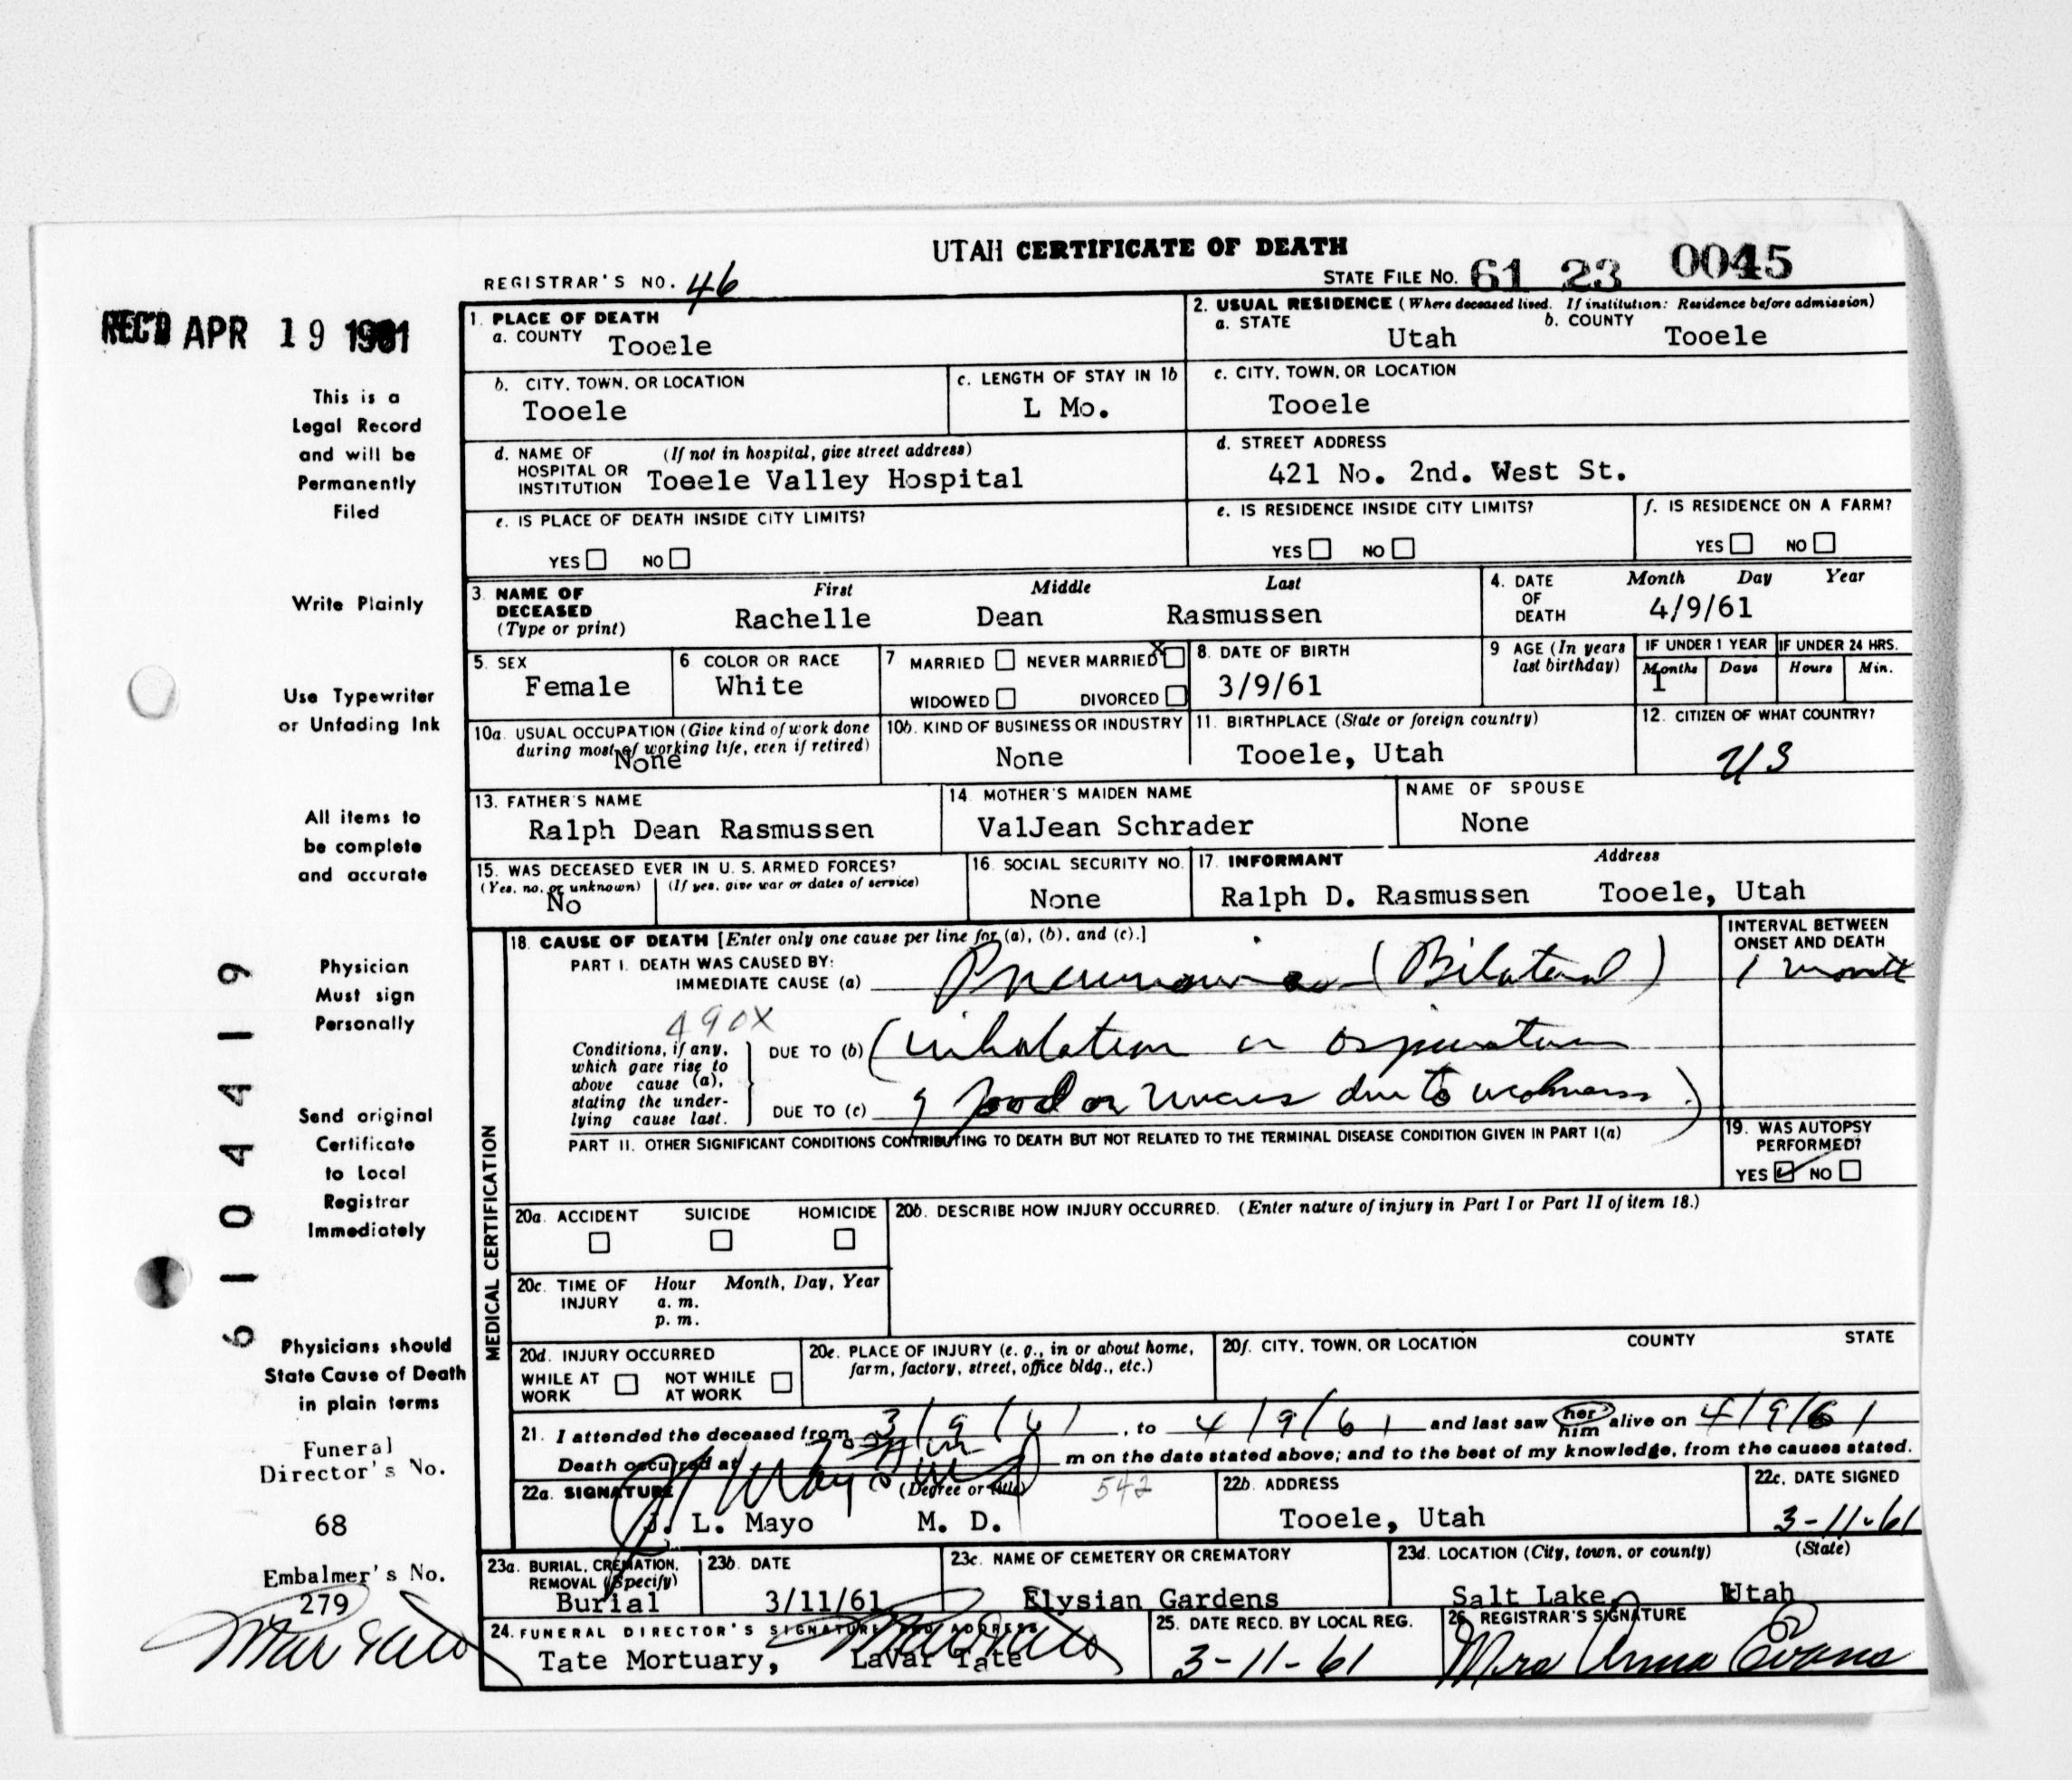 UTAH CERTIFICATE OF DEATH
REGISTRAR'S NO. 46
STATE FILE NO. 61 23 0045
REC'D APR 19 1961
This is a
Legal Record
and will be
Permanently
Filed
Write Plainly
Use Typewriter
or Unfading Ink
All items to
be complete
and accurate
Physician
Must sign
Personally
Send original
Certificate
to Local
Registrar
Immediately
Physicians should
State Cause of Death
in plain terms
Funeral
Director's No.
68
Embalmer's No.
279
6104419
1. PLACE OF DEATH
a. COUNTY Tooele
2. USUAL RESIDENCE (Where deceased lived. If institution: Residence before admission)
a. STATE Utah b. COUNTY Tooele
b. CITY, TOWN, OR LOCATION
Tooele
c. LENGTH OF STAY IN 1b
L Mo.
c. CITY, TOWN, OR LOCATION
Tooele
d. NAME OF HOSPITAL OR INSTITUTION (If not in hospital, give street address)
Toeele Valley Hospital
d. STREET ADDRESS
421 No. 2nd. West St.
e. IS PLACE OF DEATH INSIDE CITY LIMITS?
YES NO
e. IS RESIDENCE INSIDE CITY LIMITS?
YES NO
f. IS RESIDENCE ON A FARM?
YES NO
3. NAME OF DECEASED (Type or print)
First Middle Last
Rachelle Dean Rasmussen
4. DATE OF DEATH Month Day Year
4/9/61
5. SEX
Female
6 COLOR OR RACE
White
7 MARRIED NEVER MARRIED X
WIDOWED DIVORCED
8. DATE OF BIRTH
3/9/61
9 AGE (In years last birthday)
IF UNDER 1 YEAR IF UNDER 24 HRS.
Months Days Hours Min.
1
10a. USUAL OCCUPATION (Give kind of work done during most of working life, even if retired)
None
10b. KIND OF BUSINESS OR INDUSTRY
None
11. BIRTHPLACE (State or foreign country)
Tooele, Utah
12. CITIZEN OF WHAT COUNTRY?
US
13. FATHER'S NAME
Ralph Dean Rasmussen
14 MOTHER'S MAIDEN NAME
ValJean Schrader
NAME OF SPOUSE
None
15. WAS DECEASED EVER IN U. S. ARMED FORCES?
(Yes, no, or unknown) (If yes, give war or dates of service)
No
16. SOCIAL SECURITY NO.
None
17. INFORMANT Address
Ralph D. Rasmussen Tooele, Utah
MEDICAL CERTIFICATION
18. CAUSE OF DEATH [Enter only one cause per line for (a), (b), and (c).]
INTERVAL BETWEEN ONSET AND DEATH
PART I. DEATH WAS CAUSED BY:
IMMEDIATE CAUSE (a) Pneumonia (Bilateral) 1 month
490X
Conditions, if any, which gave rise to above cause (a), stating the underlying cause last.
DUE TO (b) (inhalation or aspiration
DUE TO (c) of food or mucus due to weakness.)
PART II. OTHER SIGNIFICANT CONDITIONS CONTRIBUTING TO DEATH BUT NOT RELATED TO THE TERMINAL DISEASE CONDITION GIVEN IN PART I(a)
19. WAS AUTOPSY PERFORMED?
YES NO
20a. ACCIDENT SUICIDE HOMICIDE
20b. DESCRIBE HOW INJURY OCCURRED. (Enter nature of injury in Part I or Part II of item 18.)
20c. TIME OF INJURY Hour Month, Day, Year
a. m.
p. m.
20d. INJURY OCCURRED
WHILE AT WORK NOT WHILE AT WORK
20e. PLACE OF INJURY (e. g., in or about home, farm, factory, street, office bldg., etc.)
20f. CITY, TOWN, OR LOCATION COUNTY STATE
21. I attended the deceased from 3/9/61, to 4/9/61 and last saw her him alive on 4/9/61
Death occurred at m on the date stated above; and to the best of my knowledge, from the causes stated.
22a. SIGNATURE (Degree or title) 542
J. L. Mayo M. D.
22b. ADDRESS
Tooele, Utah
22c. DATE SIGNED
3-11-61
23a. BURIAL, CREMATION, REMOVAL (Specify)
Burial
23b. DATE
3/11/61
23c. NAME OF CEMETERY OR CREMATORY
Elysian Gardens
23d. LOCATION (City, town, or county) (State)
Salt Lake, Utah
24. FUNERAL DIRECTOR'S SIGNATURE AND ADDRESS
Tate Mortuary, LaVar Tate
25. DATE RECD. BY LOCAL REG.
3-11-61
26. REGISTRAR'S SIGNATURE
Mrs Anna Evans